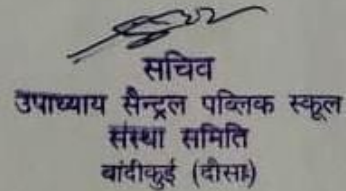 सचिव
उपाध्याय सैन्ट्रल पब्लिक स्कूल
संस्था समिति
बांदीकुई (दौसा)